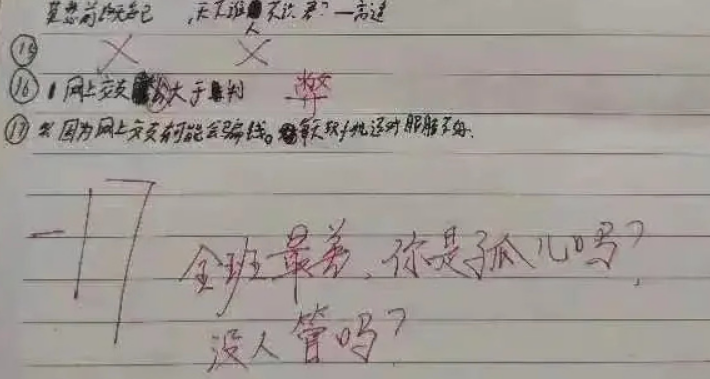 莫愁前路无知己 天下谁人不识君?—高适
⑮ × ×
⑯ 1 网上交友 大于判 弊
⑰ 因为网上交友有可能会骗钱。每天玩手机还对眼睛不好.
-17
全班最差、你是孤儿吗?
没人管吗?